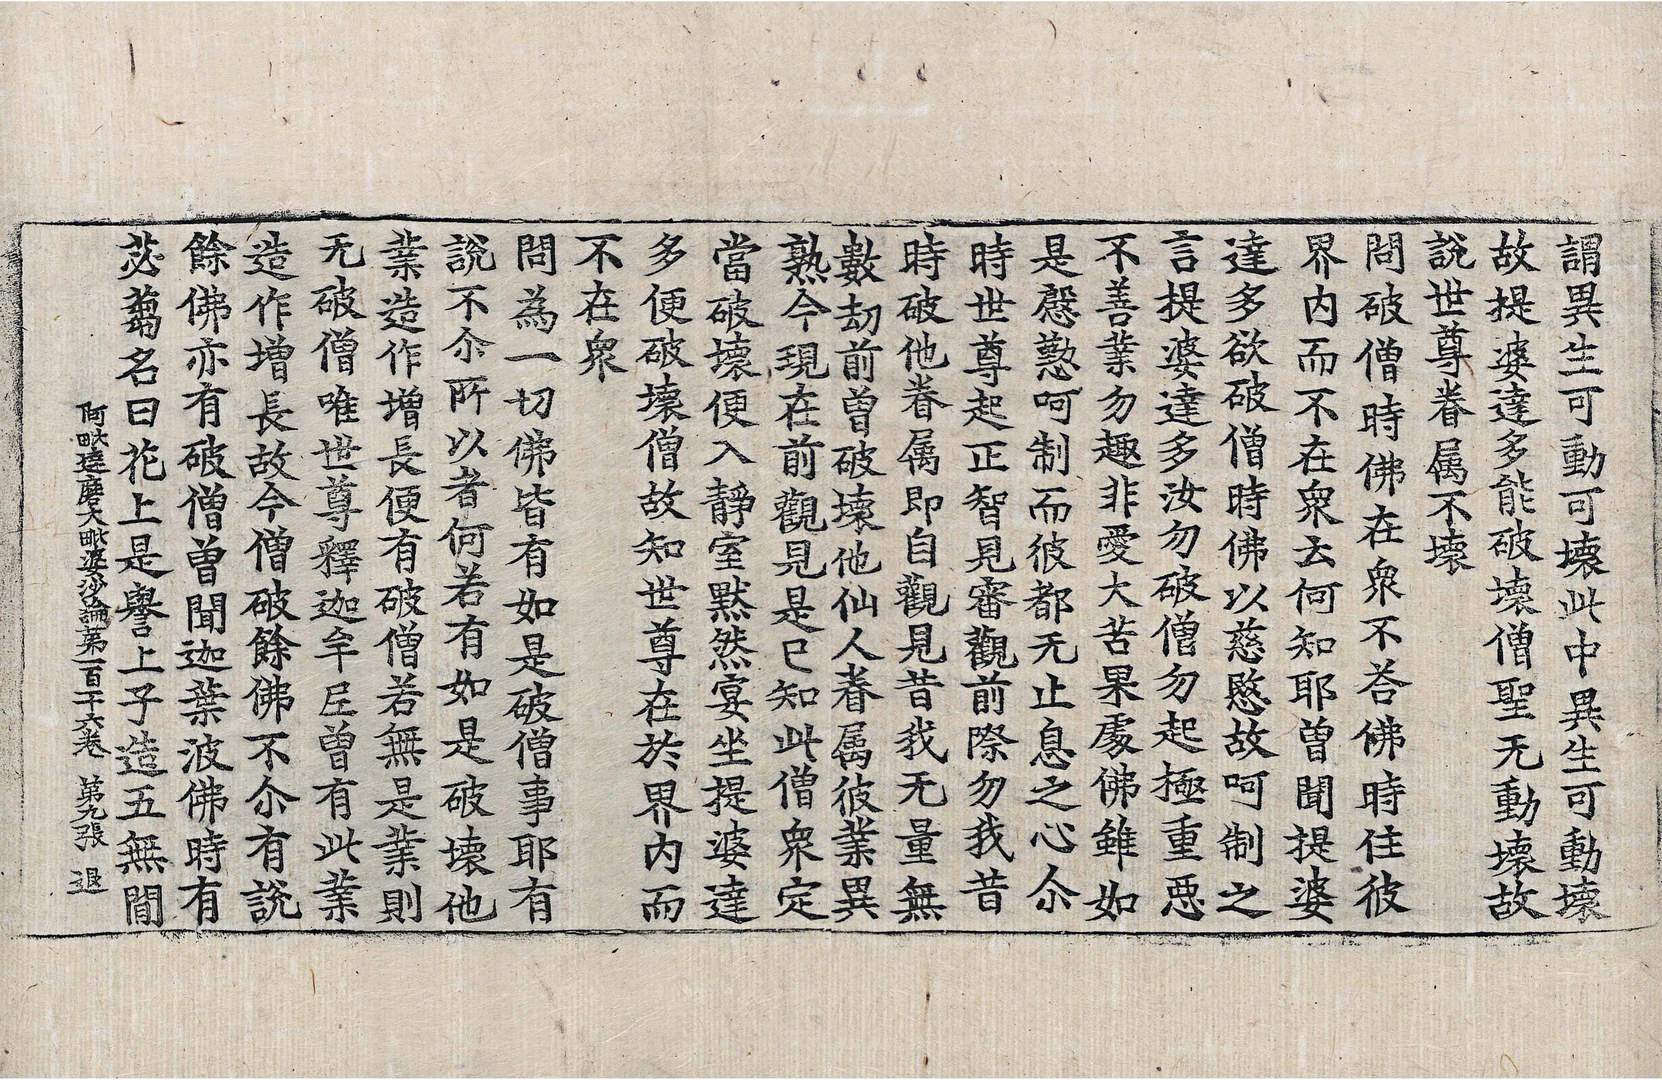 謂異生可動可壞此中異生可動壞
故提婆達多能破壞僧聖无動壞故
說世尊眷属不壞
問破僧時佛在衆不荅佛時住彼
界内而不在衆去何知耶曾聞提婆
達多欲破僧時佛以慈愍故呵制之
言提婆達多汝勿破僧勿起極重惡
不善業勿趣非愛大苦果處佛雖如
是慇懃呵制而彼都无止息之心尒
時世尊起正智見審觀前際勿我昔
時破他眷属即自觀見昔我无量無
數劫前曾破壞他仙人眷属彼業異
熟今現在前觀見是已知此僧衆定
當破壞便入靜室默然宴坐提婆達
多便破壞僧故知世尊在於界内而
不在衆
問為一切佛皆有如是破僧事耶有
說不尒所以者何若有如是破壞他
業造作增長便有破僧若無是業則
无破僧唯世尊釋迦牟尼曾有此業
造作增長故今僧破餘佛不尒有說
餘佛亦有破僧曾聞迦葉波佛時有
苾蒭名曰花上是譽上子造五無間
阿毗達磨大毗婆沙論第一百十六卷 第九張 退